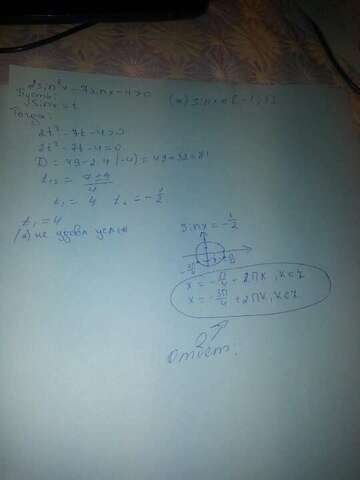 2sin²x - 7sinx - 4 > 0
(*) sinx ∈ [-1; 1]
Пусть:
sinx = t
Тогда:
2t² - 7t - 4 > 0
2t² - 7t - 4 = 0
D = 49 - 2·4·(-4) = 49 + 32 = 81
t₁,₂ = (7±9)/4
t₁ = 4 t₂ = -1/2
t₁ = 4
(*) не удовл услов
sinx = -1/2
x = -π/4 + 2πk, k ∈ z
x = -3π/4 + 2πk, k ∈ z
?
Ответ: